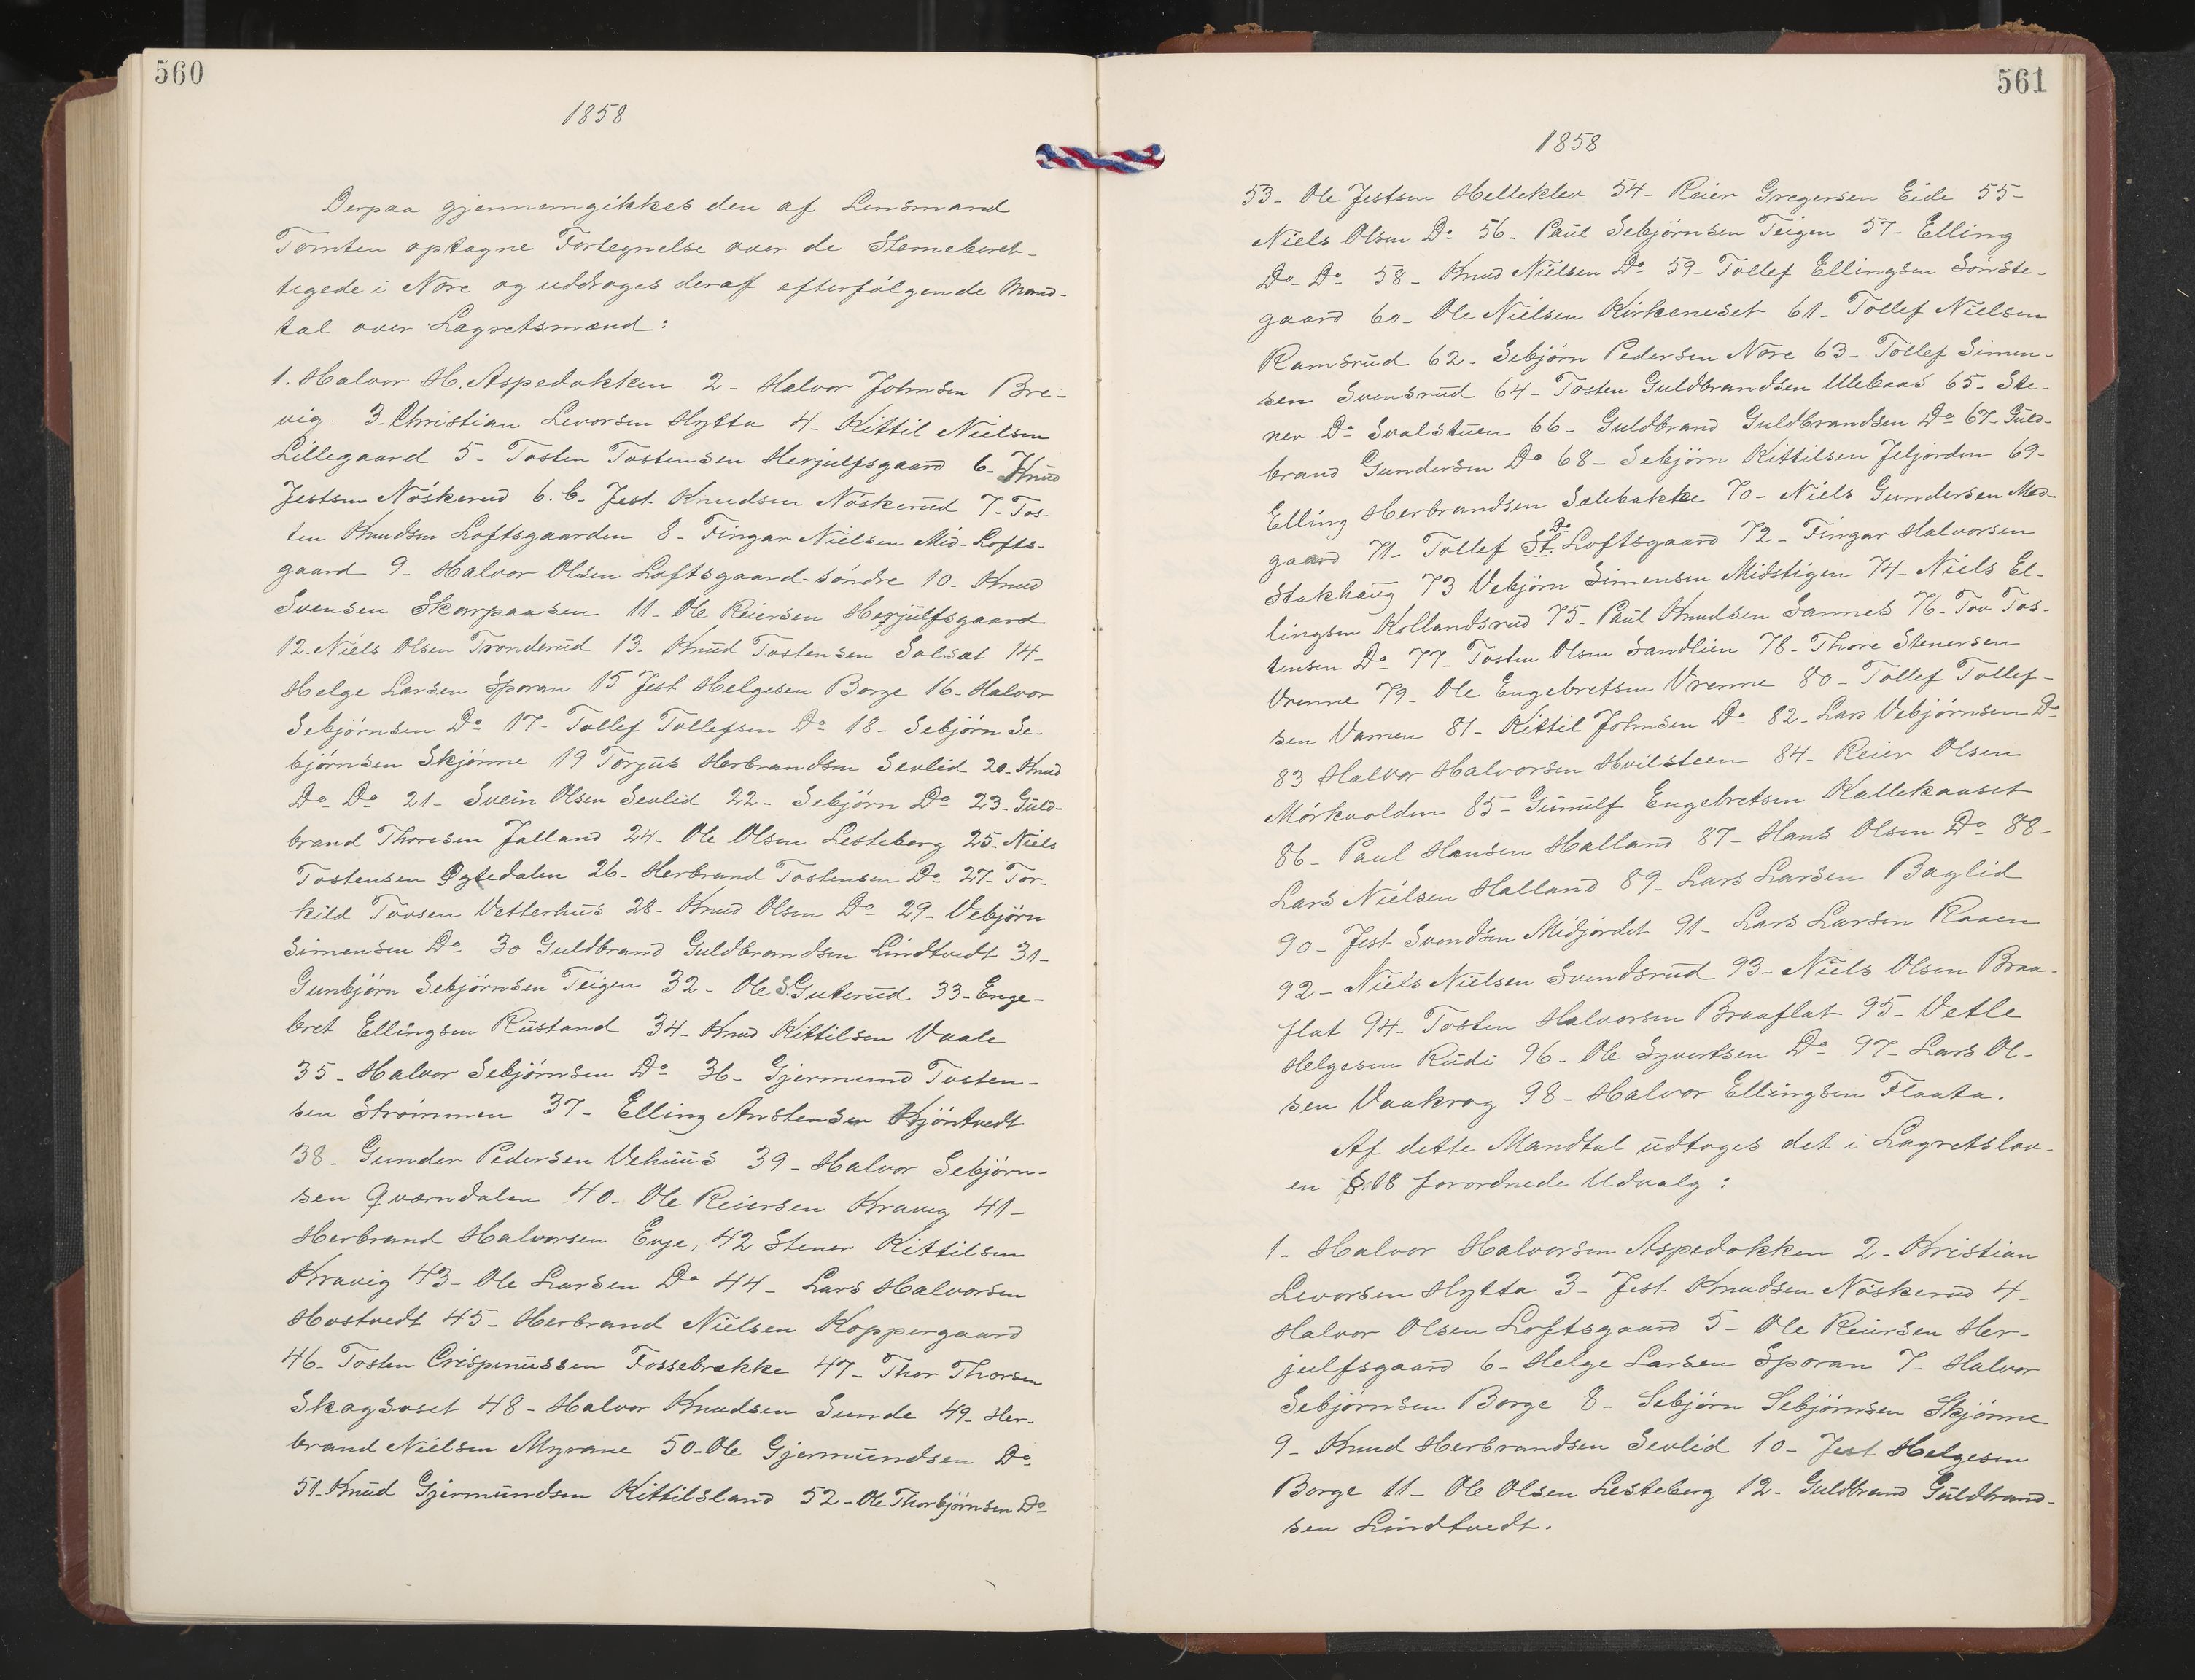 560
1858
Derpaa gjennemgikkes den af Lensmand
Tomten optagne Fortegnelse over de Stemmeberet-
tigede i Nore og uddroges deraf efterfølgende Mand-
tal over Lagretsmænd:
1. Halvor H. Aspedokken 2- Halvor Johnsen Bre-
vig. 3. Christian Levorsen Hytta 4- Kittil Nielsen
Lillegaard 5- Tosten Tostensen Herjulfsgaard 6- Knud
Jestsen Nöskerud 6.b- Jest Knudsen Nöskerud 7- Tos-
ten Knudsen Loftsgaarden 8- Fingar Nielsen Mid-Lofts-
gaard 9- Halvor Olsen Loftsgaard-söndre 10- Knud
Svensen Skarpaasen 11- Ole Reiersen Herjulfsgaard
12- Niels Olsen Tronderud 13- Knud Tostensen Solsæt 14-
Helge Larsen Sporan 15 Jest Helgesen Borge 16- Halvor
Sebjörnsen Do 17- Tollef Tollefsen Do 18- Sebjörn Se-
björnsen Skjönne 19 Torjus Herbrandsen Sevlid 20- Knud
Do- Do 21- Svein Olsen Sevlid 22- Sebjörn Do 23- Guld-
brand Thoresen Jalland 24- Ole Olsen Lesteberg 25- Niels
Tostensen Dalen 26- Herbrand Tostensen Do 27- Tor-
kild Tovsen Vetterhus 28- Knud Olsen Do 29- Vebjörn
Simensen Do 30 Guldbrand Guldbrandsen Lindtvedt 31-
Gunbjörn Sebjörnsen Teigen 32- Ole S. Guterud 33- Enge-
bret Ellingsen Rustand 34- Knud Kittilsen Vaale
35- Halvor Sebjörnsen Do 36- Gjermund Tosten-
sen Strömmen 37- Elling Anstensen Kjöntvedt
38- Gunder Pedersen Vehuus 39- Halvor Sebjörn-
sen Qværndalen 40- Ole Reiersen Kravig 41-
Herbrand Halvorsen Evje, 42 Stener Kittilsen
Kravig 43- Ole Larsen Do 44- Lars Halvorsen
Hvstvedt 45- Herbrand Nielsen Koppergaard
46- Tosten Crispinussen Fossebrekke 47- Thor Thorsen
Skagsoset 48- Halvor Knudsen Sunde 49- Her-
brand Nielsen Myrane 50- Ole Gjermundsen Do
51- Knud Gjermundsen Kittilsland 52- Ole Thorbjörnsen Do
561
1858
53- Ole Jestsen Helleklev 54- Reier Gregersen Eide 55-
Niels Olsen Do 56- Paul Sebjörnsen Teigen 57- Elling
Do- Do 58- Knud Nielsen Do 59- Tollef Ellingsen Sönste-
gaard 60- Ole Nielsen Kirkeneset 61- Tollef Nielsen
Ramsrud 62- Sebjörn Pedersen Nore 63- Tollef Simen-
sen Svensrud 64- Tosten Guldbrandsen Ulebaas 65- Ste-
ner Do Svalstuen 66- Guldbrand Guldbrandsen Do 67- Guld-
brand Gundersen Do 68- Sebjörn Kittilsen Feljorden 69-
Elling Herbrandsen Solebakke 70- Niels Gundersen Med-
gaard 71- Tollef Do St. Loftsgaard 72- Fingar Halvorsen
Stakhaug 73 Vebjörn Simensen Midstigen 74- Niels El-
lingsen Kollandsrud 75- Paul Knudsen Sannes 76- Tov Tos-
tensen Do 77- Tosten Olsen Sandlien 78- Thore Stenersen
Vrenne 79- Ole Engebretsen Vrenne 80- Tollef Tollef-
sen Vamen 81- Kittil Johnsen Do 82- Lars Vebjörnsen Do
83 Halvor Halvorsen Hvilsteen 84- Reier Olsen
Mörkvolden 85- Gunulf Engebretsen Kallekaaset
86- Paul Hansen Halland 87- Hans Olsen Do 88-
Lars Nielsen Halland 89- Lars Larsen Baglid
90- Jest Svendsen Midjordet 91- Lars Larsen Raaen
92- Niels Nielsen Svendsrud 93- Niels Olsen Braa-
flat 94- Tosten Halvorsen Braaflat 95- Vetle
Helgesen Rudi 96- Ole Syvertsen Do 97- Lars Ol-
sen Vaakrag 98- Halvor Ellingsen Flaata.
Af dette Mandtal udtoges det i Lagretslov-
en §.18 forordnede Udvalg:
1- Halvor Halvorsen Aspedokken 2- Kristian
Levorsen Hytta 3- Jest Knudsen Nöskerud 4-
Halvor Olsen Loftsgaard 5- Ole Reiersen Her-
julfsgaard 6- Helge Larsen Sporan 7- Halvor
Sebjörnsen Borge 8- Sebjörn Sebjörnsen Skjönne
9- Knud Herbrandsen Sevlid 10- Jest Helgesen
Borge 11- Ole Olsen Lesteberg 12- Guldbrand Guldbrand-
sen Lindtvedt.